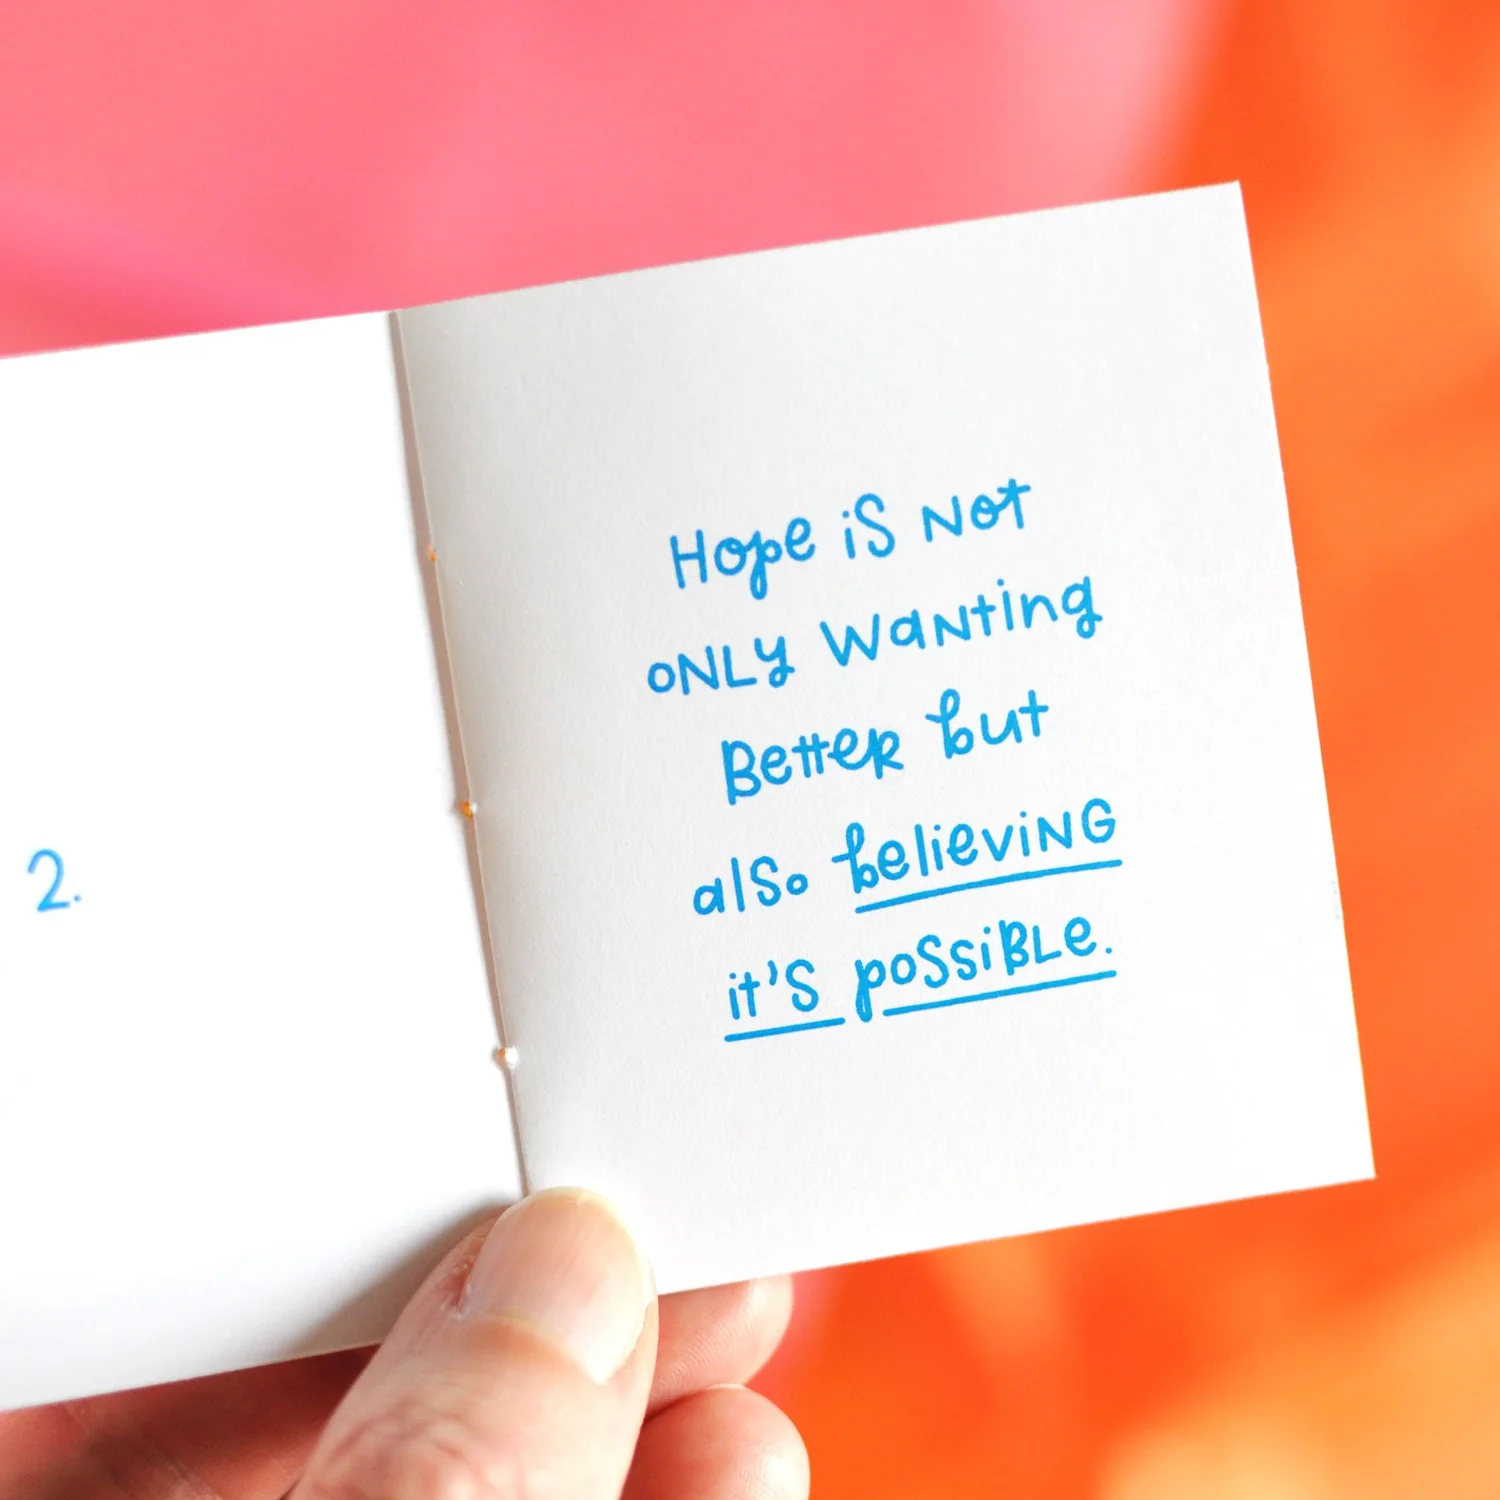 2.
Hope is Not
oNLy wanting
Better but
also believiNG
it's possiBLe.